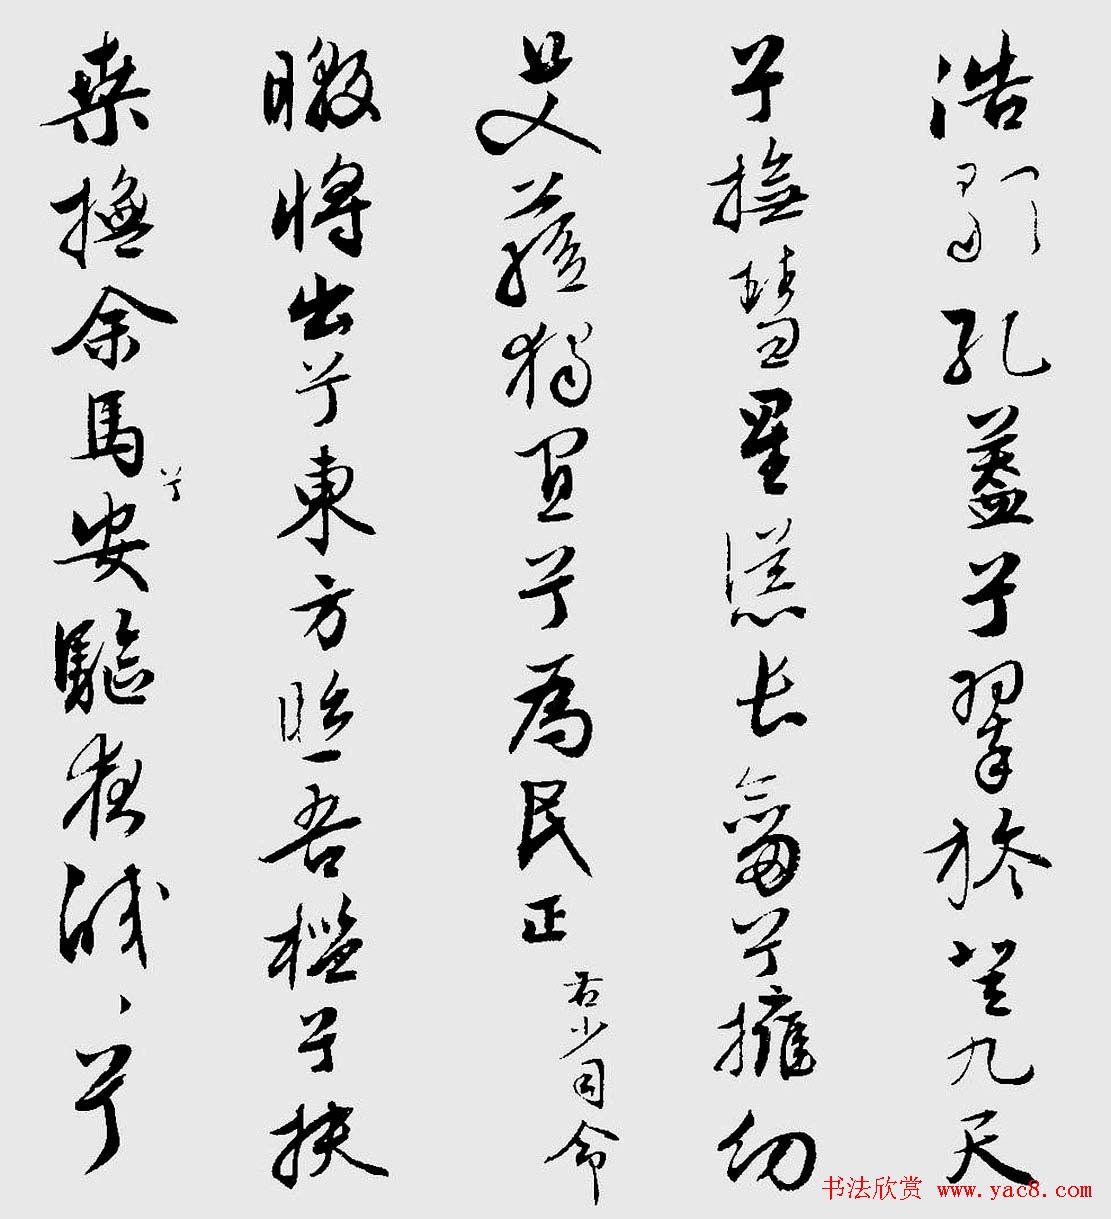 浩歌孔蓋兮翠旍登九天
兮撫彗星慫长劍兮擁幼
艾蓀獨宜兮為民正
右少司命
暾將出兮東方照吾檻兮扶
桑撫余馬兮安驅夜皎々兮
书法欣赏 www.yac8.com